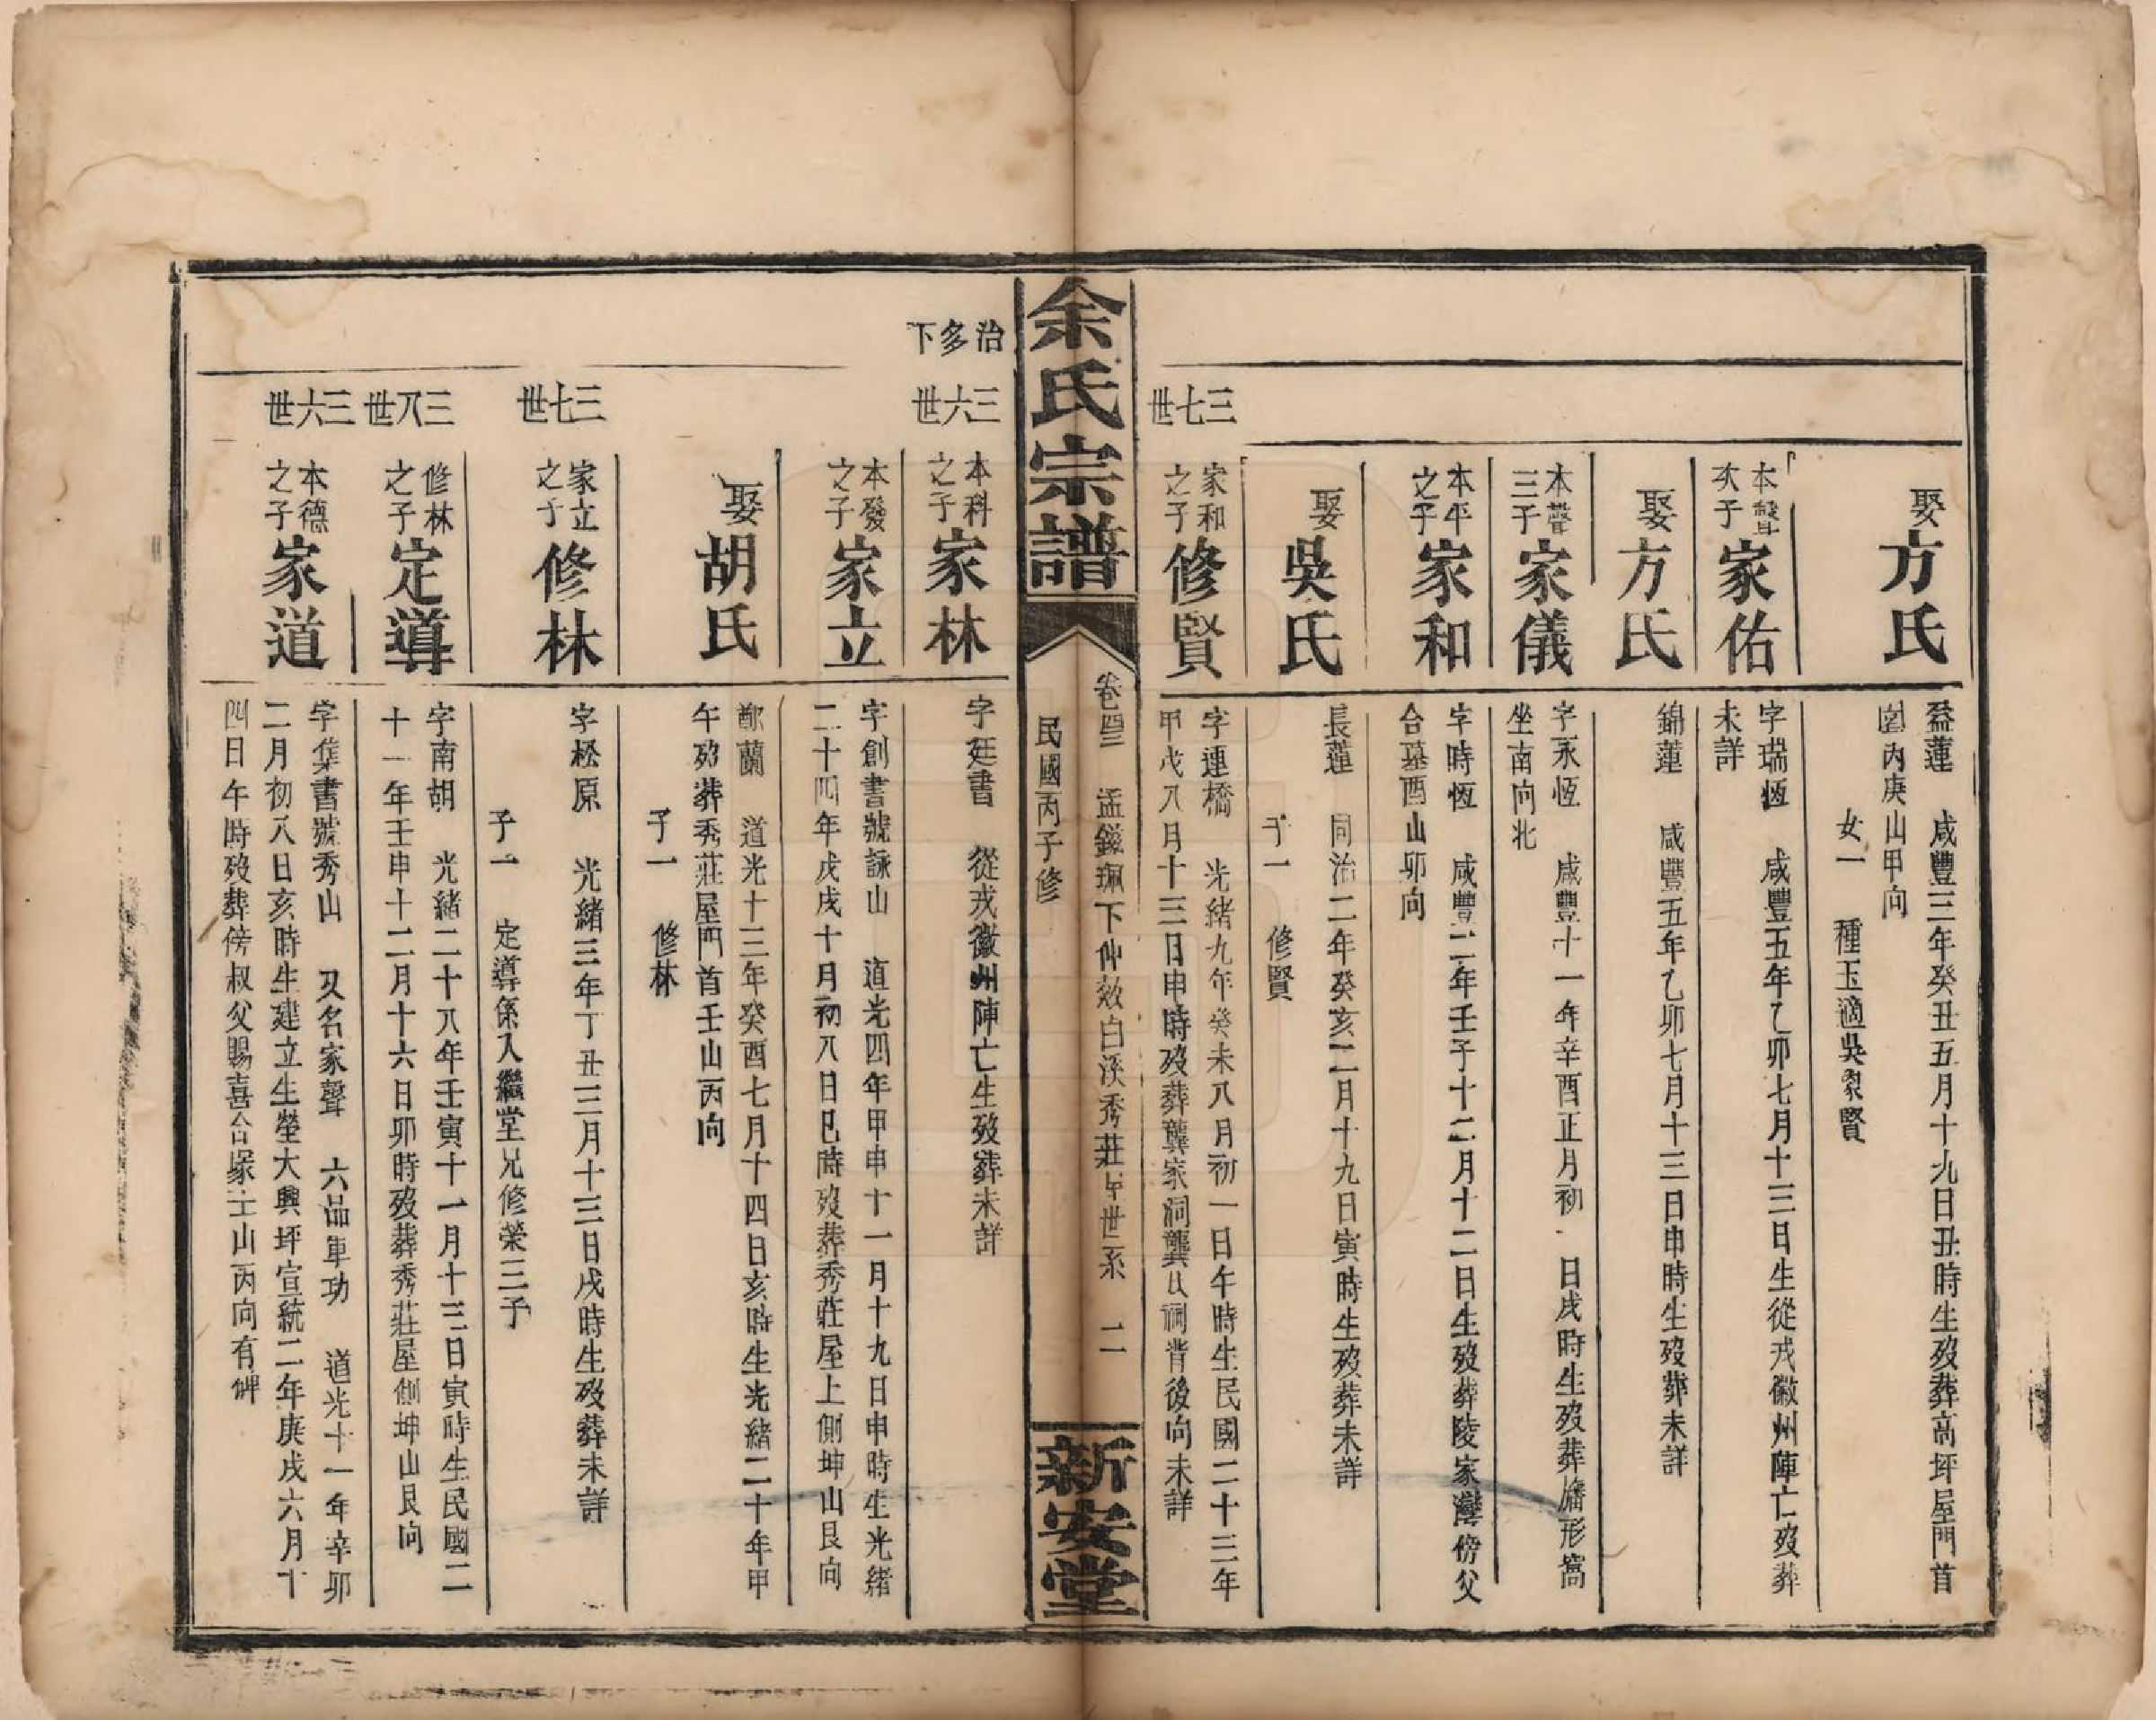 娶方氏
益蓮　咸豐三年癸丑五月十九日丑時生歿葬高坪屋門首
園內庚山甲向
女一　種玉適吳象賢
本聲次子家佑
字瑞恆　咸豐五年乙卯七月十三日生從戎徽州陣亡歿葬
未詳
娶方氏
錦蓮　咸豐五年乙卯七月十三日申時生歿葬未詳
本聲三子家儀
字永恆　咸豐十一年辛酉正月初一日戌時生歿葬旛形窩
坐南向北
本平之子家和
字時恆　咸豐二年壬子十二月十二日生歿葬陵家灣傍父
合墓酉山卯向
娶吳氏
長蓮　同治二年癸亥二月十九日寅時生歿葬未詳
子一　修賢
三七世
家和之子修賢
字連橋　光緒九年癸未八月初一日午時生民國二十三年
甲戌八月十三日申時歿葬龔家洞龔以祠背後向未詳
余氏宗譜
卷四　孟鎡珮下仲效白溪秀莊年世系　二
民國丙子修
新安堂
治多下
三六世
本科之子家林
字廷書　從戎徽州陣亡生歿葬未詳
本發之子家立
字創書號詠山　道光四年甲申十一月十九日申時生光緒
二十四年戊戌十月初八日巳時歿葬秀莊屋上側坤山艮向
娶胡氏
鄭蘭　道光十三年癸酉七月十四日亥時生光緒二十年甲
午歿葬秀莊屋門首壬山丙向
子一　修林
三七世
家立之子修林
字松原　光緒三年丁丑三月十三日戌時生歿葬未詳
子一　定導係入繼堂兄修榮三子
三八世
修林之子定導
字南胡　光緒二十八年壬寅十一月十三日寅時生民國二
十一年壬申十二月十六日卯時歿葬秀莊屋側坤山艮向
三六世
本德之子家道
字集書號秀山　又名家聲　六品軍功　道光十一年辛卯
二月初八日亥時生建立生塋大興坪宣統二年庚戌六月十
四日午時歿葬傍叔父賜喜合塚壬山丙向有碑